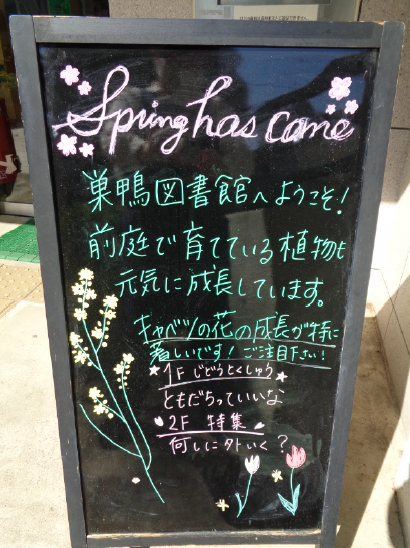 Spring has come
巣鴨図書館へようこそ!
前庭で育てている植物も
元気に成長しています。
キャベツの花の成長が特に
著しいです!ご注目下さい!
★1F じどうとくしゅう★
ともだちっていいな
2F 特集
何しに外いく?